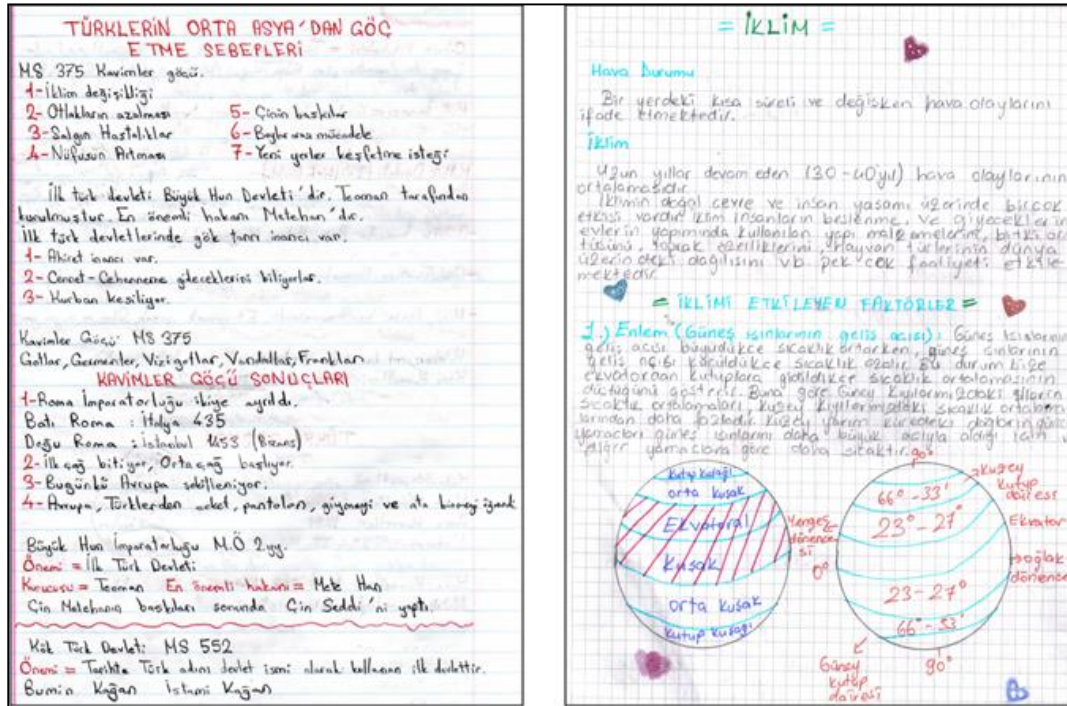 TÜRKLERİN ORTA ASYA'DAN GÖÇ
ETME SEBEPLERİ
MS 375 Kavimler göçü.
1- İklim değişikliği
2- Otlakların azalması
3- Salgın Hastalıklar
4- Nüfusun Artması
5- Çinin baskılar
6- Boylar arası mücadele
7- Yeni yerler keşfetme isteği
İlk türk devleti Büyük Hun Devleti'dir. Teoman tarafından
kurulmuştur. En önemli hakanı Metehan'dır.
İlk türk devletlerinde gök tanrı inancı var.
1- Ahiret inancı var.
2- Cennet-Cehenneme gideceklerini biliyorlar.
3- Kurban kesiliyor.
Kavimler Göçü: MS 375
Gotlar, Germenler, Vizigotlar, Vandallar, Franklar
KAVİMLER GÖÇÜ SONUÇLARI
1- Roma İmparatorluğu ikiye ayrıldı.
Batı Roma : İtalya 435
Doğu Roma : İstanbul 1453 (Bizans)
2- İlk çağ bitiyor, Orta çağ başlıyor.
3- Bugünkü Avrupa şekilleniyor.
4- Avrupa, Türklerden ceket, pantolon, giymeyi ve ata binmeyi
Büyük Hun İmparatorluğu M.Ö 2yy.
Önemi = İlk Türk Devleti
Kurucusu = Teoman En önemli hakanı = Mete Han
Çin Metehanın baskıları sonunda Çin Seddi'ni yaptı.
Kök Türk Devleti MS 552
Önemi = Tarihte Türk adını devlet ismi olarak kullanan ilk devlettir.
Bumin Kağan İstemi Kağan
= İKLİM =
Hava Durumu
Bir yerdeki kısa süreli ve değişken hava olaylarını
ifade etmektedir.
İklim
Uzun yıllar devam eden (30-40yıl) hava olaylarının
ortalamasıdır.
İklimin doğal çevre ve insan yaşamı üzerinde birçok
etkisi vardır. İklim insanların beslenme, ve giyeceklerin
evlerin yapımında kullanılan yapı malzemelerini, bitki ör
tüsünü, toprak özelliklerini, hayvan türlerinin dünya
üzerindeki dağılışını vb pek çok faaliyeti etkile-
mektedir.
= İKLİMİ ETKİLEYEN FAKTÖRLER =
1.) Enlem (Güneş ışınlarının geliş açısı): Güneş ışınlarının
geliş açısı büyüdükçe sıcaklık artarken, güneş ışınlarının
geliş açısı küçüldükçe sıcaklık azalır. Bu durum bize
ekvatordan kutuplara gidildikçe sıcaklık ortalamasının
düştüğünü gösterir. Buna göre Güney kıyılarımızdaki illerin
sıcaklık ortalamaları, kuzey kıyılarımızdaki sıcaklık ortalama
larından daha fazladır. Kuzey yarım küredeki dağların güney
yamaçları güneş ışınlarını daha büyük açıyla aldığı için
diğer yamaçlara göre daha sıcaktır.
kutup kuşağı
orta kuşak
Ekvatoral
Kuşak
orta kuşak
kutup kuşağı
Yengeç
dönence
si
0°
90°
66°-33'
23°-27°
23-27°
66°-33'
90°
Kuzey
kutup
dairesi
Ekvator
oğlak
dönence
Güney
kutup
dairesi